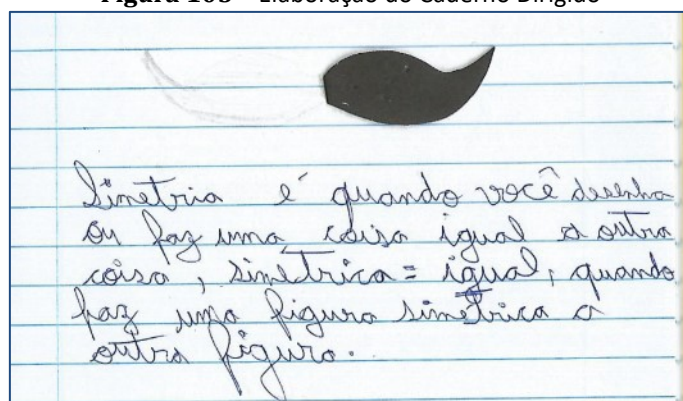 Figura 103 – Elaboração do Caderno Dirigido
Simetria é quando você desenha
ou faz uma coisa igual a outra
coisa, simétrica = igual, quando
faz uma figura simétrica a
outra figura.